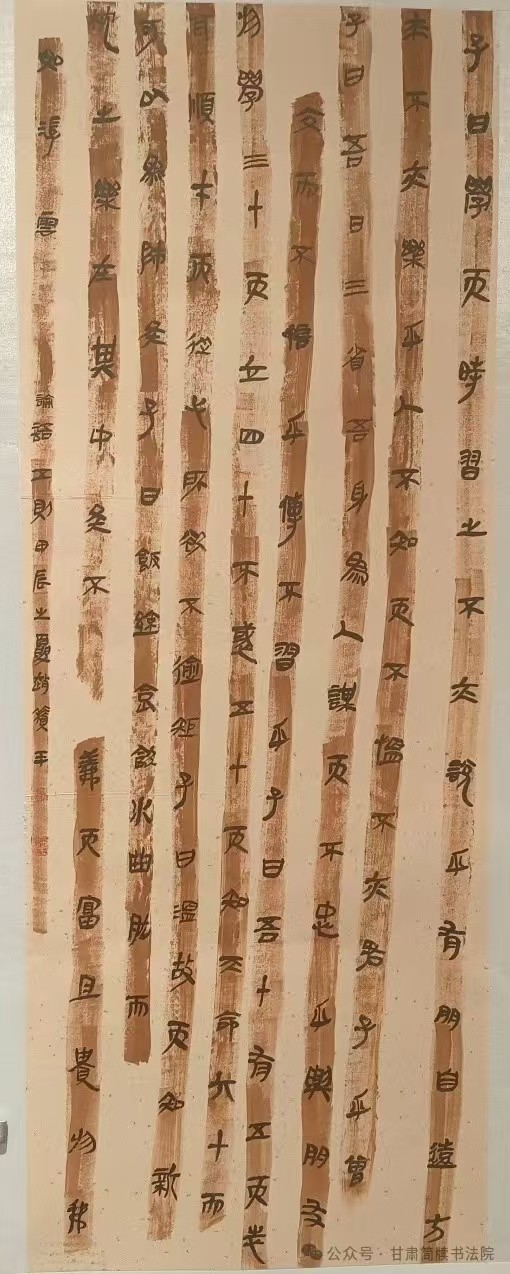 子曰學而時習之不亦說乎有朋自遠方
來不亦樂乎人不知而不慍不亦君子乎曾
子曰吾日三省吾身為人謀而不忠乎與朋友
交而不信乎傳不習乎子曰吾十有五而志
於學三十而立四十不惑五十而知天命六十而
耳順七十而從心所欲不踰矩子曰溫故而知新
可以為師矣子曰飯疏食飲水曲肱而
枕之樂在其中矣不義而富且貴於我
如浮雲
論語五則甲辰之夏
公众号·甘肃简牍书法院